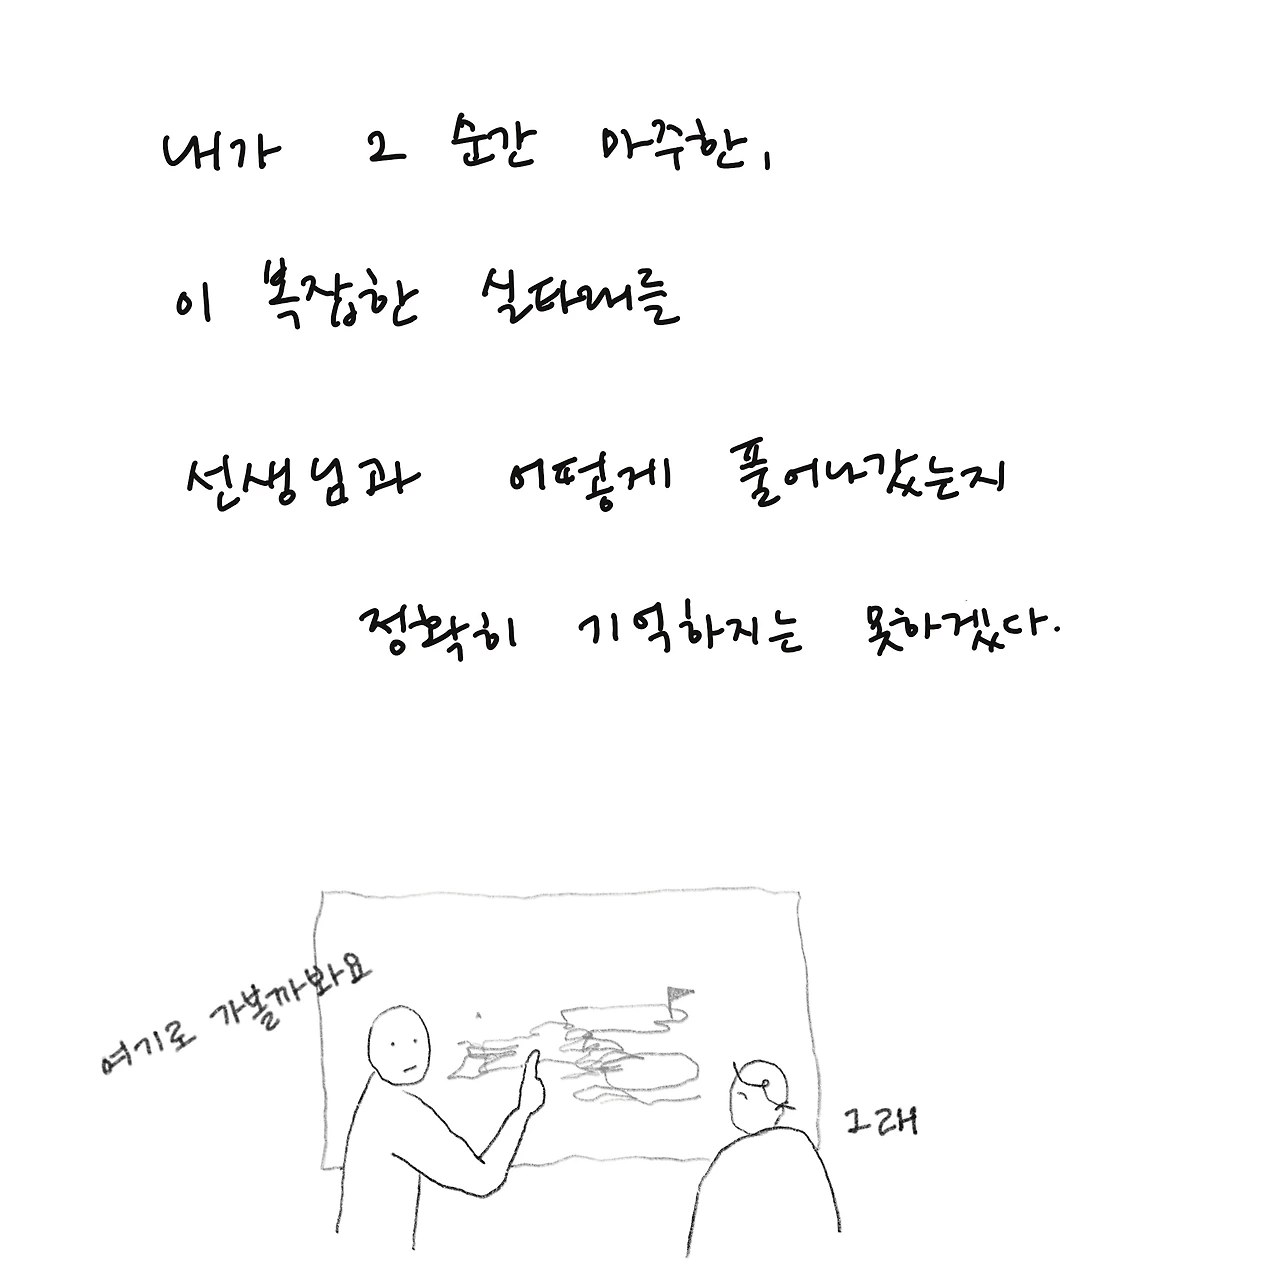 내가 그 순간 마주한,
이 복잡한 실타래를
선생님과 어떻게 풀어나갔는지
정확히 기억하지는 못하겠다.
여기로 가볼까봐요
그래